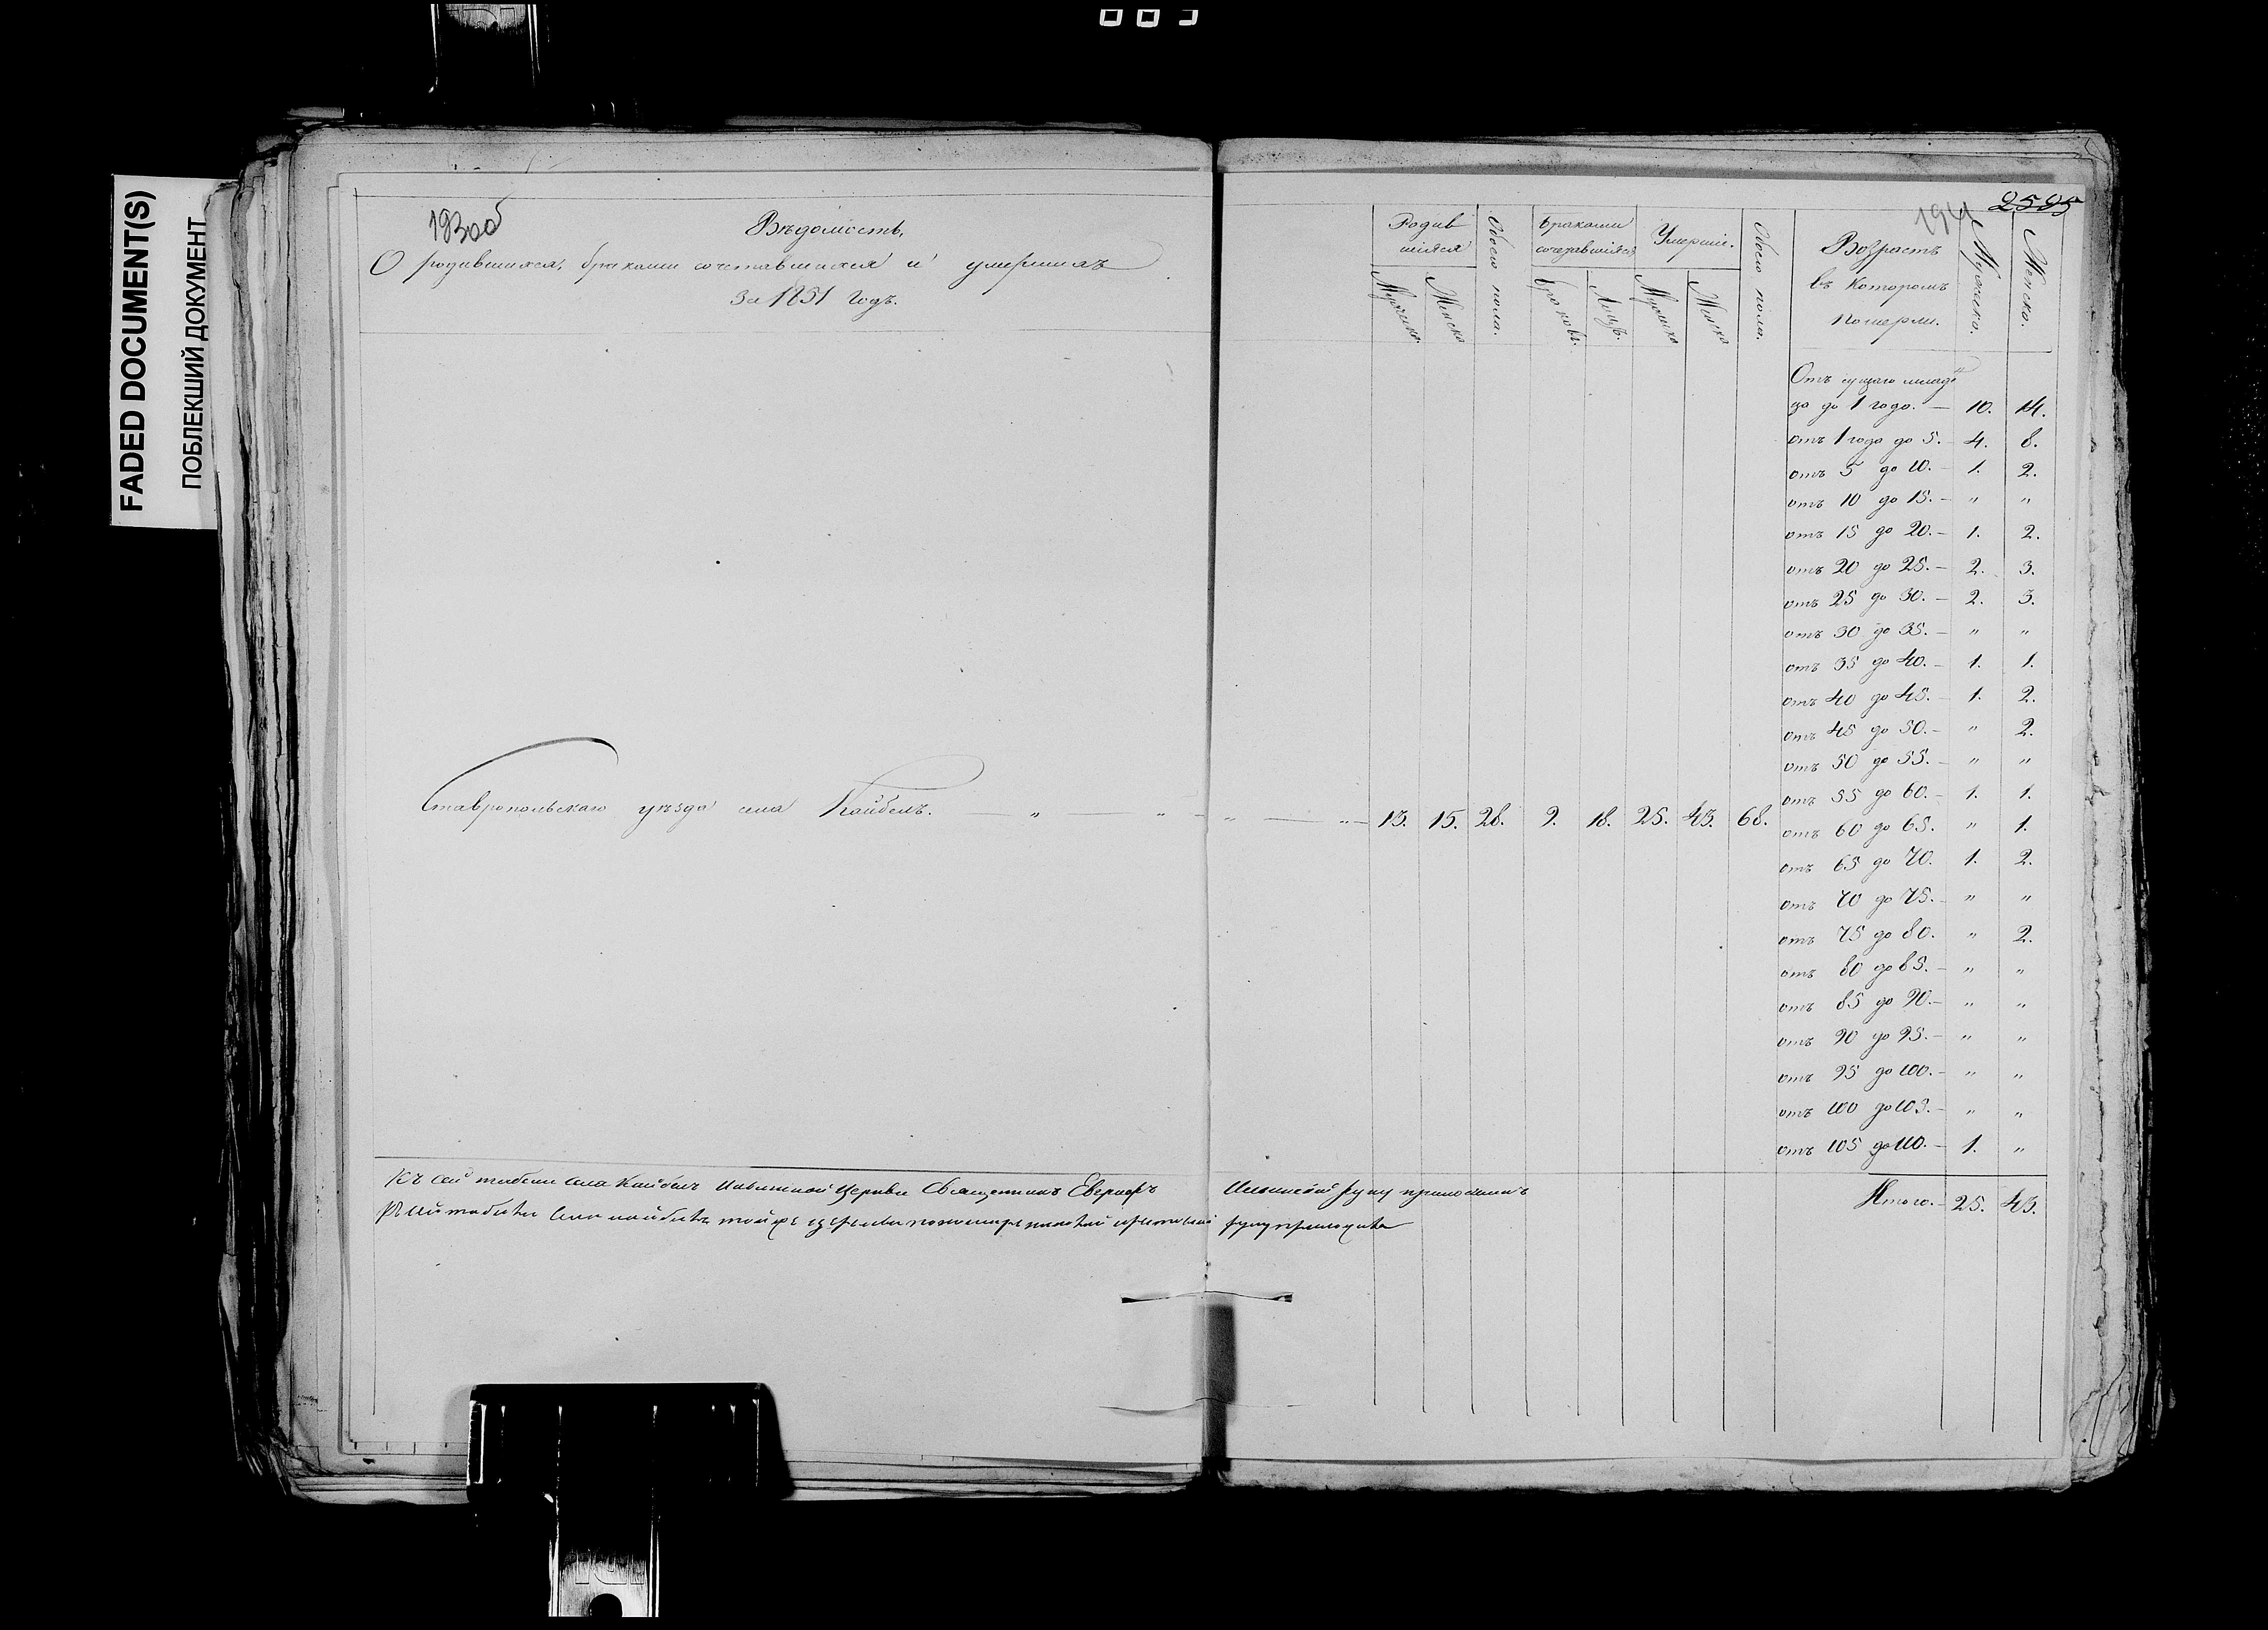 FADED DOCUMENT(S)
ПОБЛЕКШИЙ ДОКУМЕНТ
193об
Вѣдомость,
О родившихся, браками сочетавшихся и умершихъ
За 1851 годъ.
Ставропольскаго уѣзда села Кайбелъ. — " — " —
2595
194
Родив
шіеся
Мужеска.
Женска
Обоего пола.
Браками
сочетавшіеся
Браковъ.
Лицъ.
Умершіе.
Мужеска
Женска
Обоего пола.
Возрастъ
въ которомъ
померли.
Мужеска.
Женска.
" — " — 13. 15. 28. 9. 18. 25. 43. 68.
Отъ сущаго младе
ца до 1 года. — 10. 14.
отъ 1 года до 5. — 4. 8.
отъ 5 до 10. — 1. 2.
отъ 10 до 15. — " "
отъ 15 до 20. — 1. 2.
отъ 20 до 25. — 2. 3.
отъ 25 до 30. — 2. 3.
отъ 30 до 35. — " "
отъ 35 до 40. — 1. 1.
отъ 40 до 45. — 1. 2.
отъ 45 до 50. — " 2.
отъ 50 до 55. — " "
отъ 55 до 60. — 1. 1.
отъ 60 до 65. " 1.
отъ 65 до 70. 1. 2.
отъ 70 до 75. — " "
отъ 75 до 80. " 2.
отъ 80 до 85. — " "
отъ 85 до 90. — " "
отъ 90 до 95. — " "
отъ 95 до 100. — " "
отъ 100 до 105. — " "
отъ 105 до 110. — 1. "
Итого. — 25. 43.
Къ сей табели села Кайбелъ церкви Священникъ руку приложилъ
села той же церкви руку приложилъ